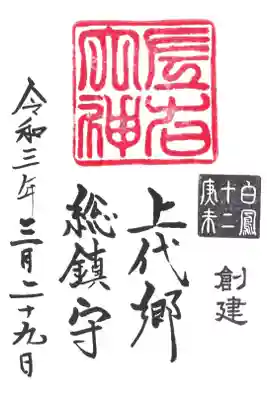 左右
大神
白鳳
十二
庚未
創建
上代郷
総鎮守
令和三年三月二十九日